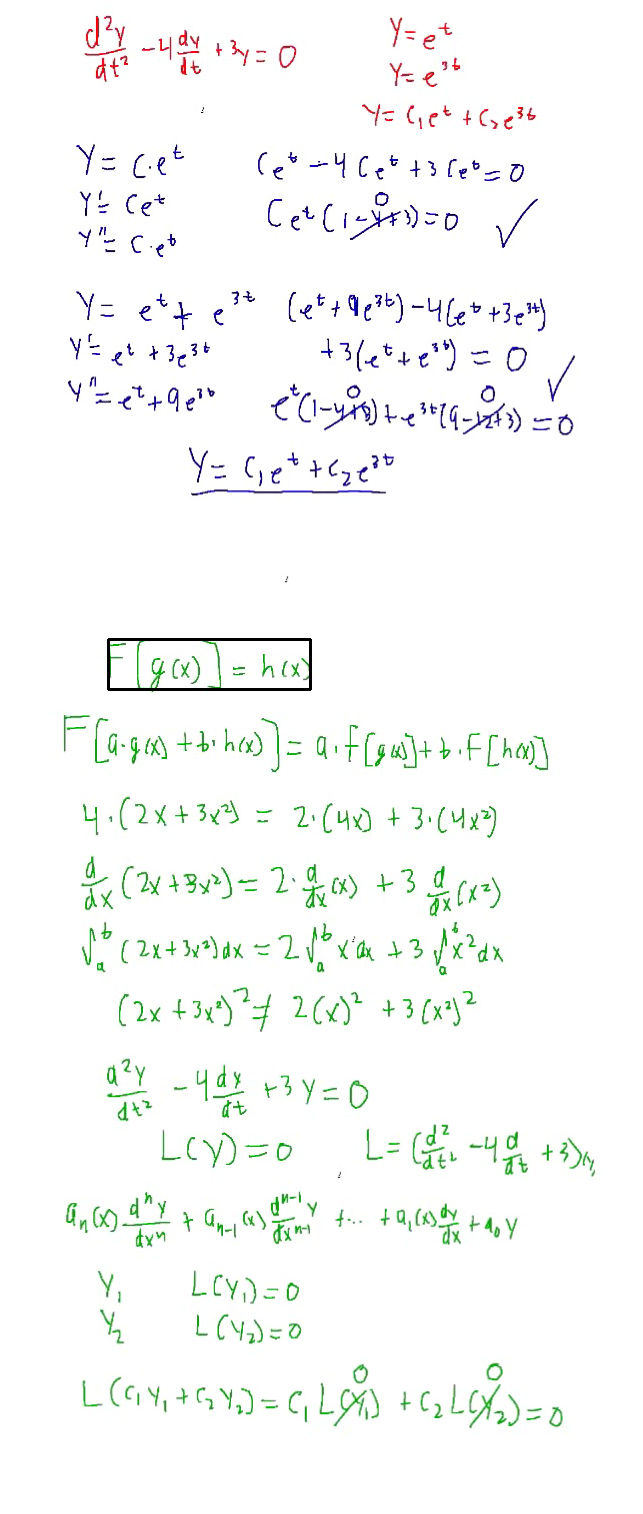 d²y/dt² - 4 dy/dt + 3y = 0
y = e^t
y = e^3t
y = C₁e^t + C₂e^3t
y = C·e^t
y' = Ce^t
y'' = C·e^t
Ce^t - 4Ce^t + 3Ce^t = 0
Ce^t(1-4+3) = 0 ✓
0
y = e^t + e^3t
y' = e^t + 3e^3t
y'' = e^t + 9e^3t
(e^t + 9e^3t) - 4(e^t + 3e^3t)
+3(e^t + e^3t) = 0 ✓
0 0
e^t(1-4+3) + e^3t(9-12+3) = 0
y = C₁e^t + C₂e^3t
F[g(x)] = h(x)
F[a·g(x) + b·h(x)] = a·F[g(x)] + b·F[h(x)]
4·(2x + 3x²) = 2·(4x) + 3·(4x²)
d/dx (2x + 3x²) = 2·d/dx(x) + 3 d/dx(x²)
∫_a^b (2x + 3x²)dx = 2∫_a^b x dx + 3∫_a^b x²dx
(2x + 3x²)² ≠ 2(x)² + 3(x²)²
d²y/dt² - 4 dy/dt + 3y = 0
L(y) = 0 L = (d²/dt² - 4 d/dt + 3)y
aₙ(x) dⁿy/dxⁿ + aₙ₋₁(x) dⁿ⁻¹y/dxⁿ⁻¹ + ... + a₁(x) dy/dx + a₀y
y₁ L(y₁) = 0
y₂ L(y₂) = 0
0 0
L(C₁y₁ + C₂y₂) = C₁L(y₁) + C₂L(y₂) = 0